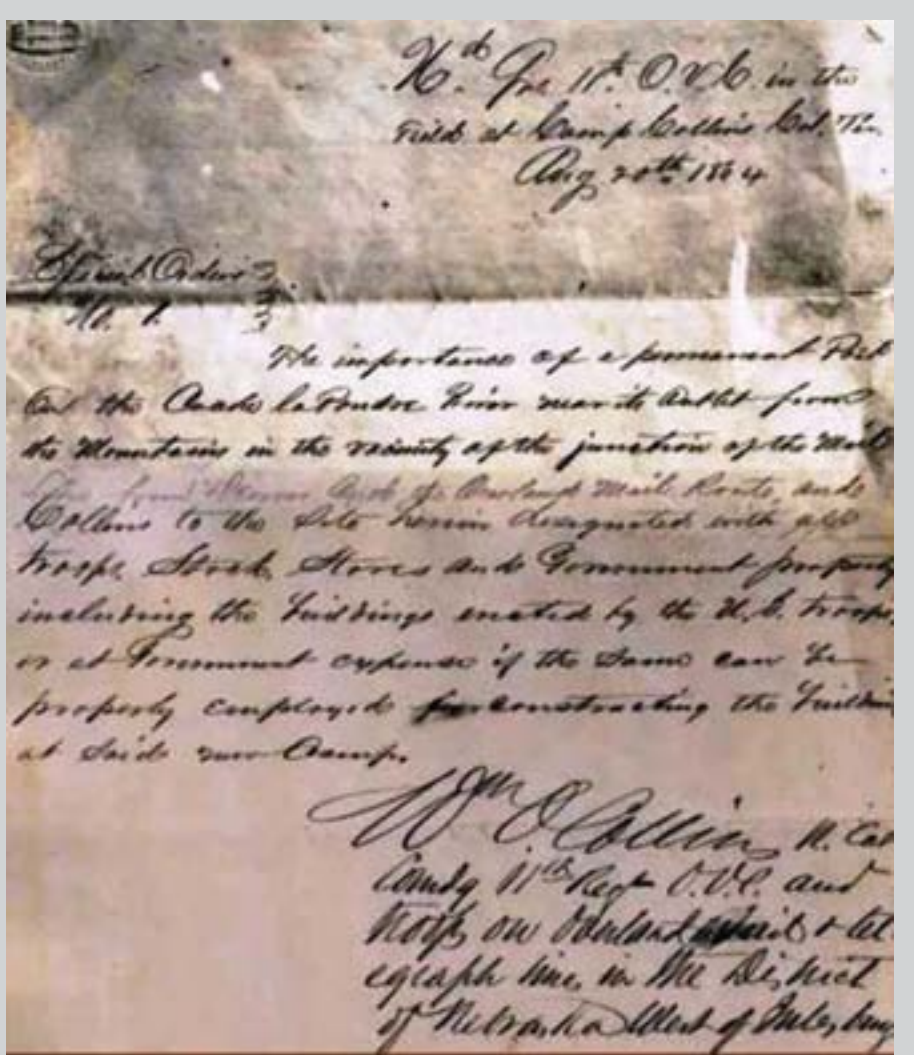 Hd Qrs 11th O.V.C. in the
Field at Camp Collins Col. Ter.
Aug 20th 1864
Special Orders
No. 1.
The importance of a permanent Post
on the Cache la Poudre River near its outlet from
the Mountains in the vicinity of the junction of the Mail
from Denver and Overland Mail Route, and
Collins to the Site herein designated with all
troops Stock, Stores and Government property
including the buildings erected by the U.S. troops,
or at Government expense if the same can be
properly employed for constructing the buildin
at said new Camp.
Wm O Collins Lt. Col
Comdg 11th Regt O.V.C. and
troops on Overland mail & tel
egraph line, in the District
of Nebraska West of Julesburg